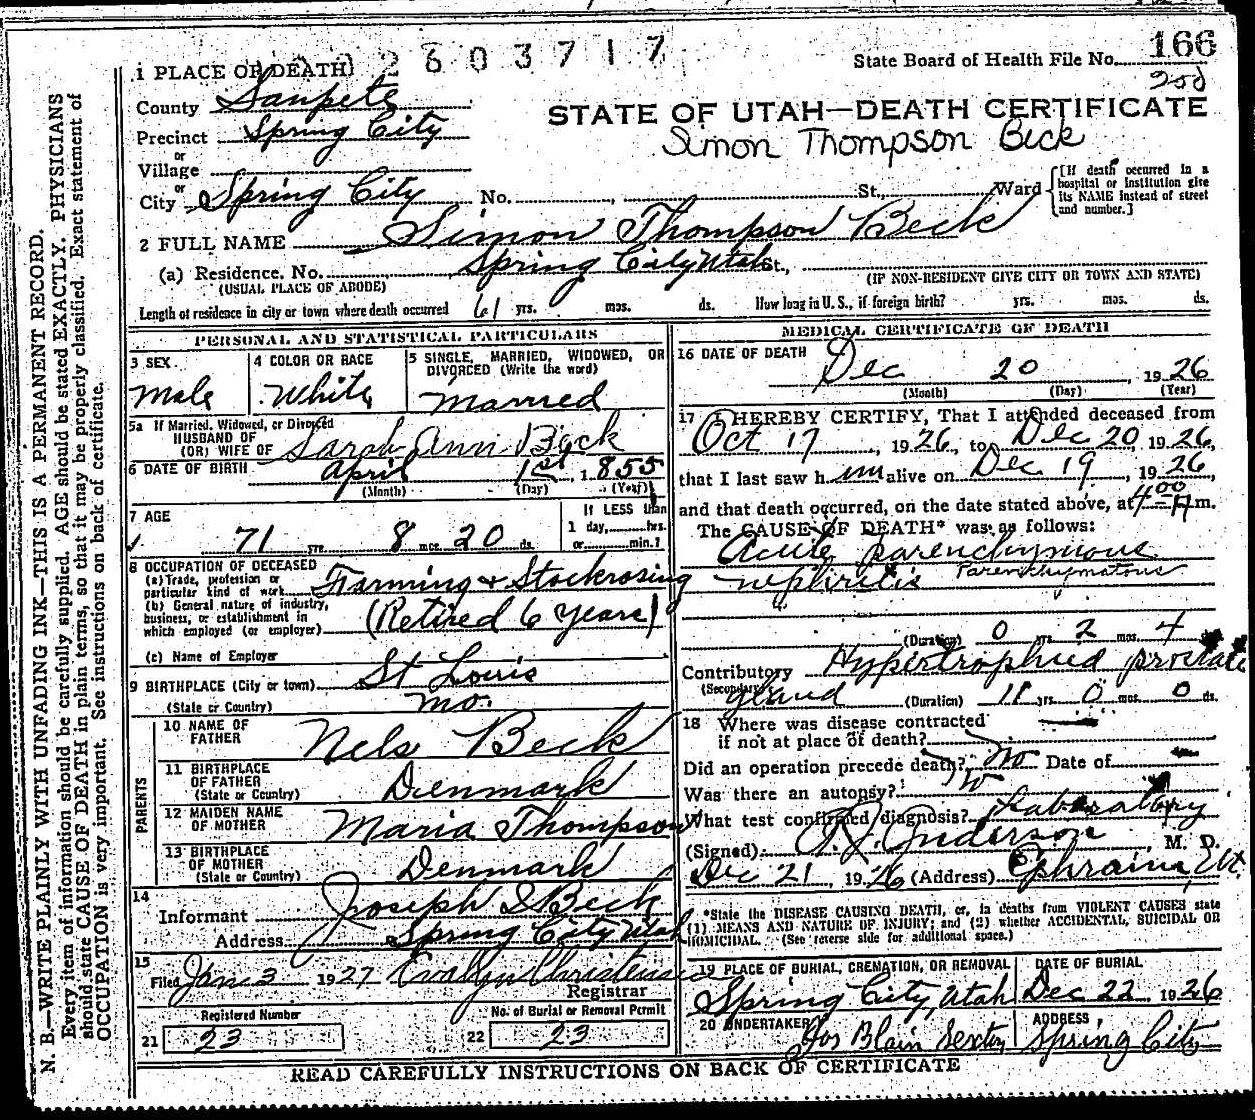 2603717
State Board of Health File No. 166
200
1 PLACE OF DEATH
County Sanpete
STATE OF UTAH—DEATH CERTIFICATE
Precinct Spring City
Simon Thompson Beck
or
Village
or
City Spring City No. St. Ward
[If death occurred in a hospital or institution give its NAME instead of street and number.]
2 FULL NAME Simon Thompson Beck
(a) Residence, No. Spring City Utah St.,
(USUAL PLACE OF ABODE) (IF NON-RESIDENT GIVE CITY OR TOWN AND STATE)
Length of residence in city or town where death occurred 61 yrs. mos. ds. How long in U. S., if foreign birth? yrs. mos. ds.
PERSONAL AND STATISTICAL PARTICULARS
3 SEX
Male
4 COLOR OR RACE
White
5 SINGLE, MARRIED, WIDOWED, OR DIVORCED (Write the word)
Married
5a If Married, Widowed, or Divorced
HUSBAND OF
(OR) WIFE OF Sarah Ann Beck
6 DATE OF BIRTH April 1st 1855
(Month) (Day) (Year)
7 AGE
71 yrs. 8 mos. 20 ds.
If LESS than
1 day, hrs.
or min.?
8 OCCUPATION OF DECEASED
(a) Trade, profession or
particular kind of work Farming & Stockrosing
(b) General nature of industry,
business, or establishment in
which employed (or employer) (Retired 6 years)
(c) Name of Employer
9 BIRTHPLACE (City or town) St Louis
(State or Country) Mo.
PARENTS
10 NAME OF
FATHER Nels Beck
11 BIRTHPLACE
OF FATHER
(State or Country) Denmark
12 MAIDEN NAME
OF MOTHER Maria Thompson
13 BIRTHPLACE
OF MOTHER
(State or Country) Denmark
14
Informant Joseph S Beck
Address Spring City Utah
15
Filed Jan 3 1927 Evallyn Christensen
Registrar
Registered Number
21 23
No. of Burial or Removal Permit
22 23
MEDICAL CERTIFICATE OF DEATH
16 DATE OF DEATH
Dec 20, 1926
(Month) (Day) (Year)
17 I HEREBY CERTIFY, That I attended deceased from
Oct 17, 1926, to Dec 20, 1926,
that I last saw h im alive on Dec 19, 1926,
and that death occurred, on the date stated above, at 4:00 A m.
The CAUSE OF DEATH* was as follows:
Acute parenchymous
nephritis Parenchymatous
(Duration) 0 yrs. 2 mos. 4
Contributory Hypertrophied prostate
(Secondary) gland (Duration) 11 yrs. 0 mos. 0 ds.
18 Where was disease contracted
if not at place of death?
Did an operation precede death? No Date of
Was there an autopsy? No
What test confirmed diagnosis? Laboratory
(Signed) A. J. Anderson, M. D.
Dec 21, 1926 (Address) Ephraim, Ut.
*State the DISEASE CAUSING DEATH, or, in deaths from VIOLENT CAUSES state
(1) MEANS AND NATURE OF INJURY; and (2) whether ACCIDENTAL, SUICIDAL OR
HOMICIDAL. (See reverse side for additional space.)
19 PLACE OF BURIAL, CREMATION, OR REMOVAL
Spring City, Utah
DATE OF BURIAL
Dec 22 1926
20 UNDERTAKER
Jos Blain Sexton
ADDRESS
Spring City
READ CAREFULLY INSTRUCTIONS ON BACK OF CERTIFICATE
N. B.—WRITE PLAINLY WITH UNFADING INK—THIS IS A PERMANENT RECORD.
Every item of information should be carefully supplied. AGE should be stated EXACTLY. PHYSICIANS
should state CAUSE OF DEATH in plain terms, so that it may be properly classified. Exact statement of
OCCUPATION is very important. See instructions on back of certificate.